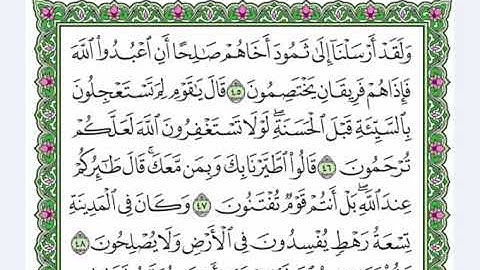 وَلَقَدْ أَرْسَلْنَآ إِلَىٰ ثَمُودَ أَخَاهُمْ صَٰلِحًا أَنِ ٱعْبُدُوا۟ ٱللَّهَ
فَإِذَا هُمْ فَرِيقَانِ يَخْتَصِمُونَ ٤٥ قَالَ يَٰقَوْمِ لِمَ تَسْتَعْجِلُونَ
بِٱلسَّيِّئَةِ قَبْلَ ٱلْحَسَنَةِ ۖ لَوْلَا تَسْتَغْفِرُونَ ٱللَّهَ لَعَلَّكُمْ
تُرْحَمُونَ ٤٦ قَالُوا۟ ٱطَّيَّرْنَا بِكَ وَبِمَن مَّعَكَ ۚ قَالَ طَٰٓئِرُكُمْ
عِندَ ٱللَّهِ ۖ بَلْ أَنتُمْ قَوْمٌ تُفْتَنُونَ ٤٧ وَكَانَ فِى ٱلْمَدِينَةِ
تِسْعَةُ رَهْطٍ يُفْسِدُونَ فِى ٱلْأَرْضِ وَلَا يُصْلِحُونَ ٤٨